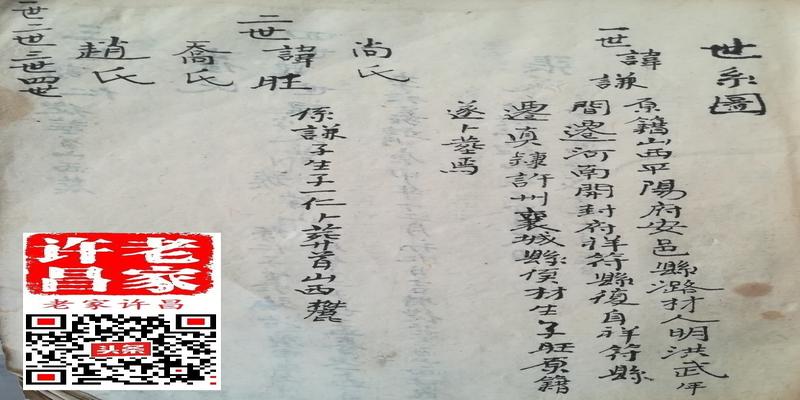 世系圖
一世 諱謙
原籍山西平陽府安邑縣潞村人明洪武年
間遷河南開封府祥符縣後自祥符縣
遷直隸許州襄城縣侯村生子旺原籍
遂卜塟焉
尚氏
二世 諱旺
係謙子生子一仁卜葬首山西麓
喬氏
趙氏
一世二世三世四世
老家许昌
老家许昌
头条